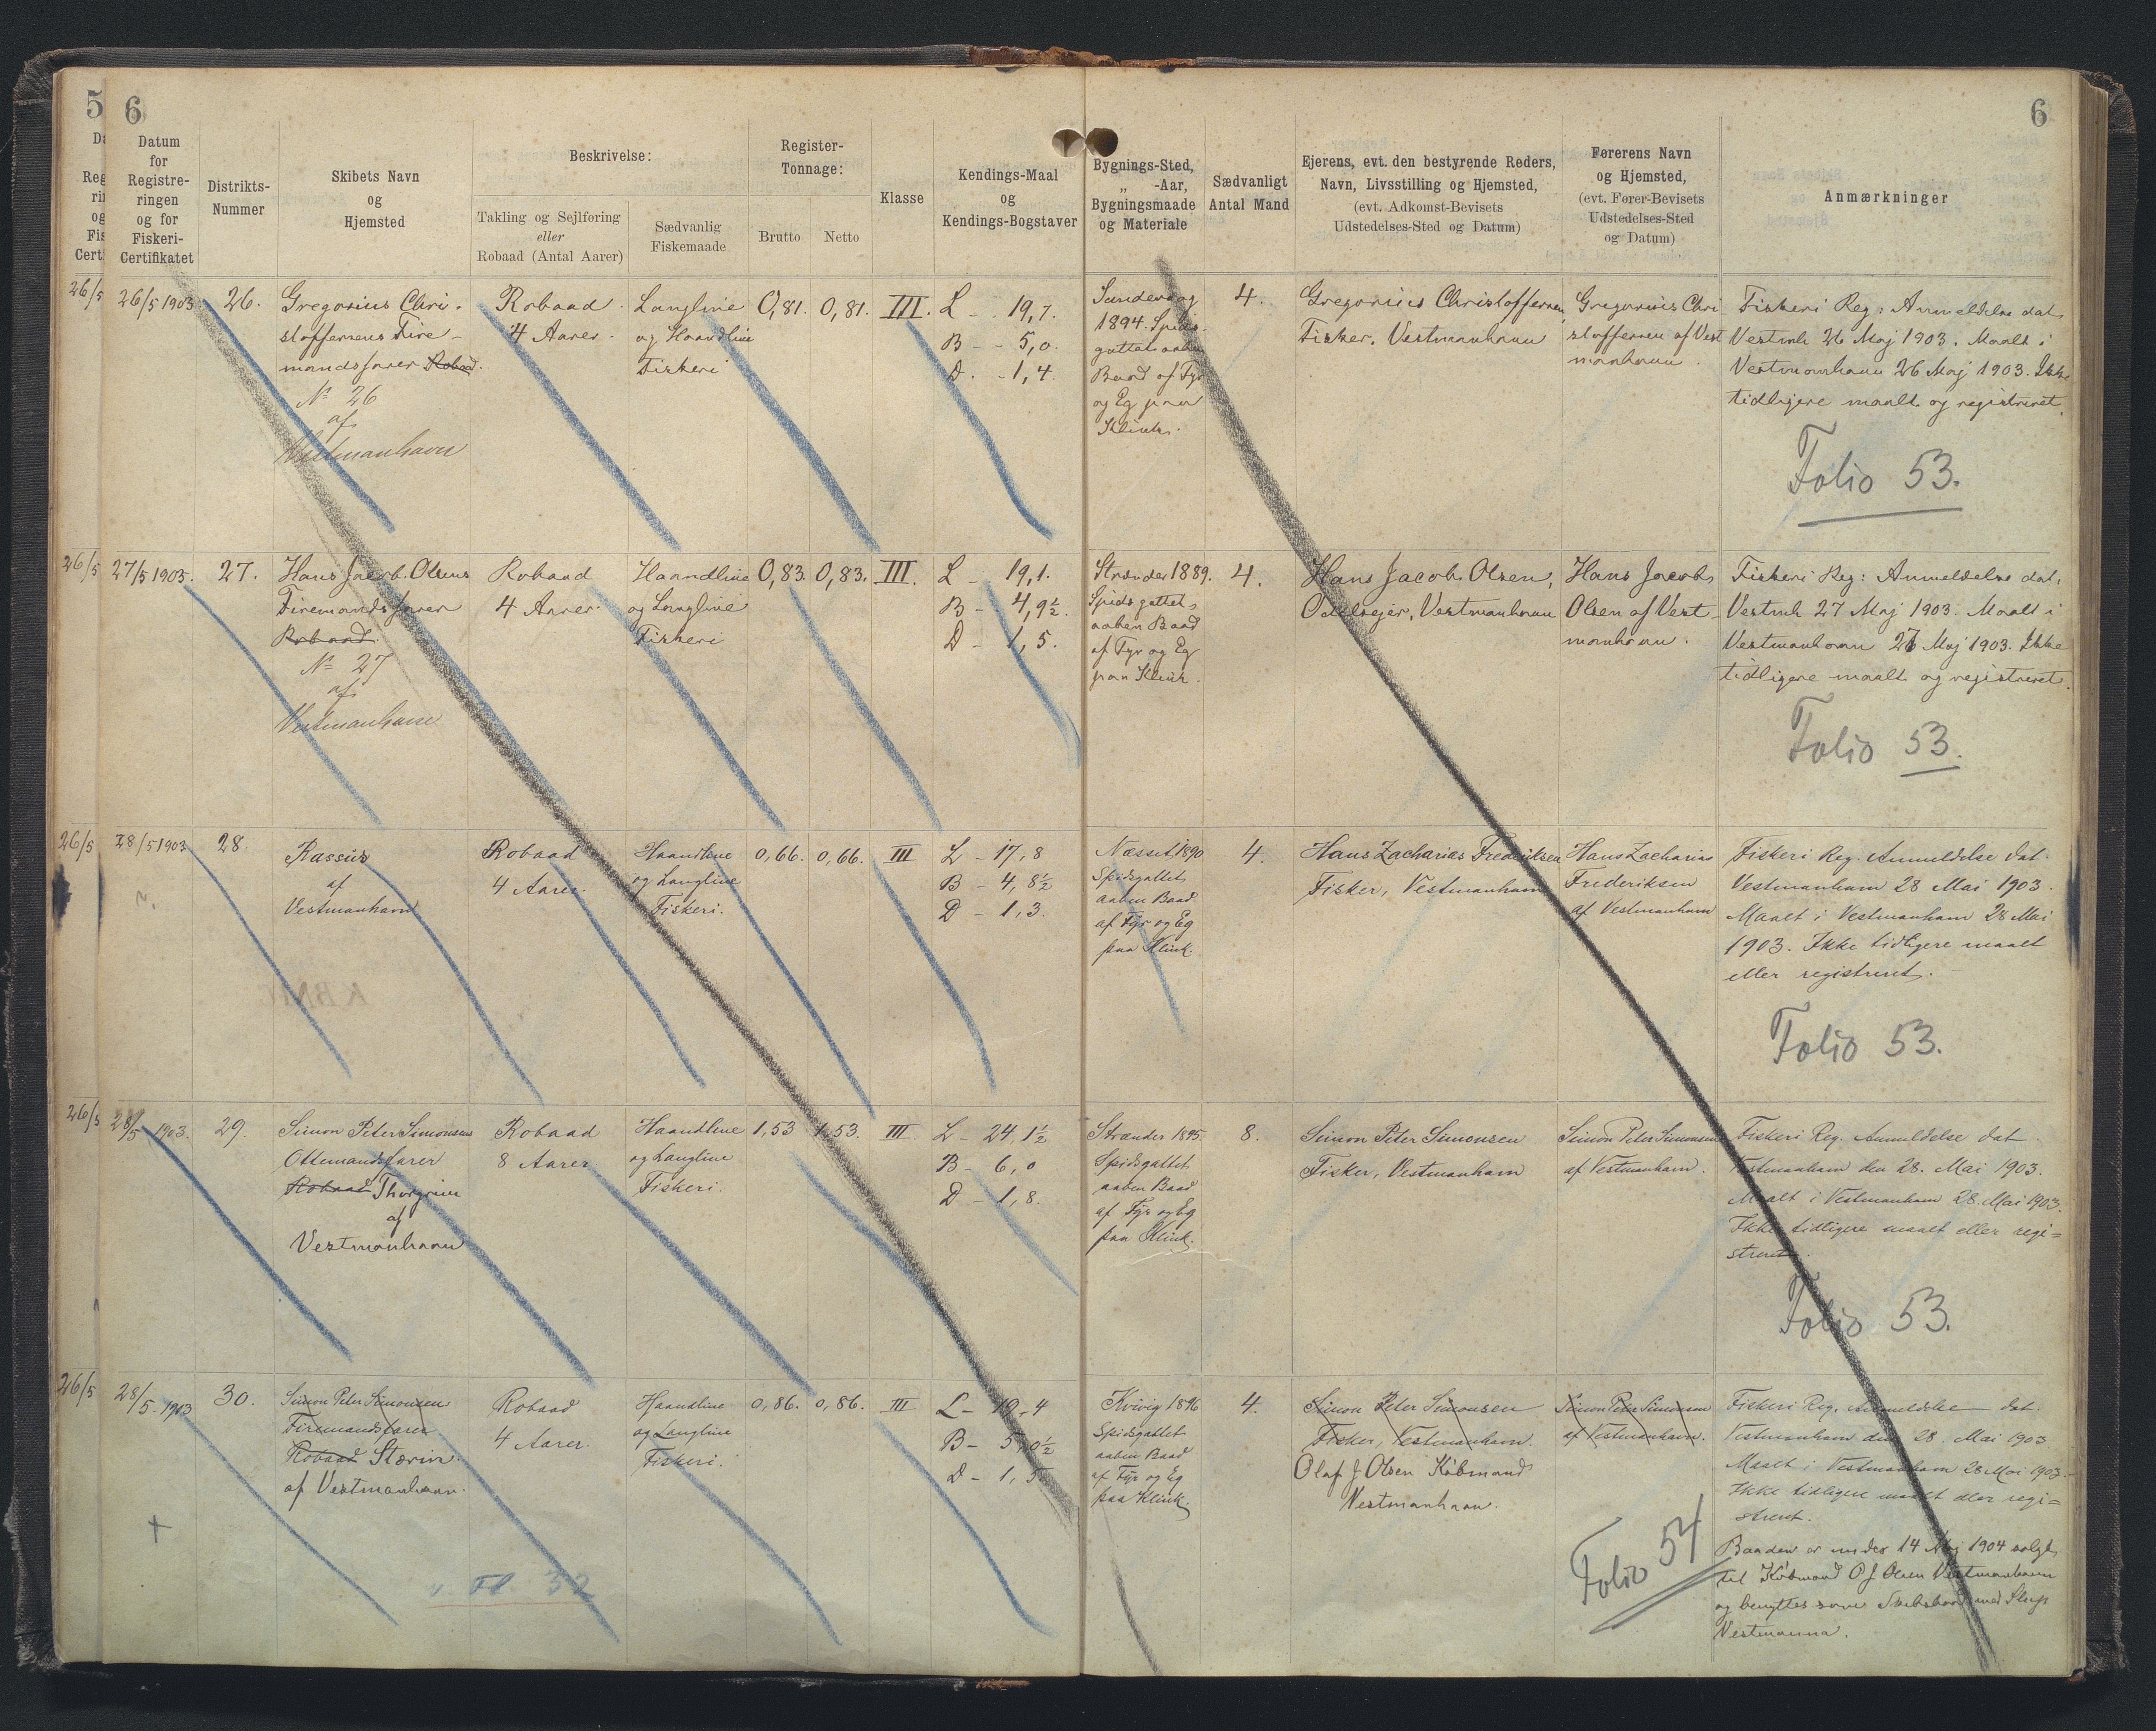 5
6
6
Datum
for
Registre-
ringen
og for
Fiskeri-
Certifikatet
Distrikts-
Nummer
Skibets Navn
og
Hjemsted
Beskrivelse:
Takling og Sejlføring
eller
Robaad (Antal Aarer)
Sædvanlig
Fiskemaade
Register-
Tonnage:
Brutto
Netto
Klasse
Kendings-Maal
og
Kendings-Bogstaver
Bygnings-Sted,
„ -Aar,
Bygningsmaade
og Materiale
Sædvanligt
Antal Mand
Ejerens, evt. den bestyrende Reders,
Navn, Livsstilling og Hjemsted,
(evt. Adkomst-Bevisets
Udstedelses-Sted og Datum)
Førerens Navn
og Hjemsted,
(evt. Fører-Bevisets
Udstedelses-Sted
og Datum)
Anmærkninger
26/5
26/5 1903
26.
Gregorius Chri-
stoffersens Fire-
mandsfarer Robaad.
No 26
af
Vestmanhavn
Robaad
4 Aarer
Langline
og Haandline
Fiskeri
0,81.
0,81.
III.
L - 19,7.
B - 5,0.
D. - 1,4.
1894. Spids-
gattet aaben
Baad af Fyr
og Eg paa
Klink.
4.
Gregorius Christoffersen,
Fisker, Vestmanhavn
Gregorius Chri-
stoffersen af Vest
manhavn.
Fiskeri Reg: Anmeldelse dat.
Vestmh 26 Maj 1903. Maalt i
Vestmanhavn 26 Maj 1903. Ikke
tidligere maalt og registreret.
Folio 53.
26/5
27/5 1903.
27.
Hans Jacob Olsens
Firemandsfarer
Robaad
No 27
af
Vestmanhavn
Robaad
4 Aarer.
Haandline
og Langline
Fiskeri
0,83.
0,83.
III.
L - 19,1.
B - 4,9½.
D - 1,5.
Strænder 1889.
Spidsgattet,
aaben Baad
af Fyr og Eg
paa Klink.
4.
Hans Jacob Olsen,
Odelsejer, Vestmanhavn
Hans Jacob
Olsen af Vest-
manhavn.
Fiskeri Reg: Anmeldelse dat.
Vestmh 27 Maj 1903. Maalt i
Vestmanhavn 27 Maj 1903. Ikke
tidligere maalt og registreret.
Folio 53.
26/5
28/5 1903
28.
Rassus
af
Vestmanhavn
Robaad
4 Aarer.
Haandline
og Langline
Fiskeri.
0,66.
0,66.
III
L - 17,8
B - 4,8½
D - 1,3.
Næsset 1890
Spidsgattet
aaben Baad
af Fyr og Eg
paa Klink.
4.
Hans Zacharias Frederiksen
Fisker, Vestmanhavn
Hans Zacharias
Frederiksen
af Vestmanhavn
Fiskeri Reg. Anmeldelse dat.
Vestmanhavn 28 Mai 1903.
Maalt i Vestmanhavn 28 Mai
1903. Ikke tidligere maalt
eller registreret.
Folio 53.
26/5
28/5 1903.
29.
Simon Peter Simonsens
Ottemandsfarer
Robaad Thorgrim
af
Vestmanhavn
Robaad
8 Aarer
Haandline
og Langline
Fiskeri.
1,53
1,53.
III
L - 24,1½
B - 6,0
D - 1,8.
Strænder 1895.
Spidsgattet
aaben Baad
af Fyr og Eg
paa Klink.
8.
Simon Peter Simonsen
Fisker, Vestmanhavn
Simon Peter Simonsen
af Vestmanhavn.
Fiskeri Reg. Anmeldelse dat.
Vestmanhavn den 28. Mai 1903.
Maalt i Vestmanhavn 28. Mai 1903.
Ikke tidligere maalt eller regi=
streret.
Folio 53.
26/5
28/5 1903
30.
Simon Peter Simonsen
Firemandsfarer
Robaad Stærin
af Vestmanhavn.
Robaad
4 Aarer.
Haandline
og Langline
Fiskeri.
0,86.
0,86.
III
L - 19,4
B - 5,0½
D - 1,5.
Kvivig 1896
Spidsgattet
aaben Baad
af Fyr og Eg
paa Klink.
4.
Simon Peter Simonsen
Fisker, Vestmanhavn.
Olaf J Olsen Købmand
Vestmanhavn.
Simon Peter Simonsen
af Vestmanhavn.
Fiskeri Reg. Anmeldelse dat.
Vestmanhavn den 28. Mai 1903
Maalt i Vestmanhavn 28 Mai 1903.
Ikke tidligere maalt eller regi=
streret.
Baaden er under 14 Maj 1904 solgt
til Købmand O J Olsen Vestmanhavn
og benyttes som Skibsbaad med Slup
Vestmanna.
Folio 54
32